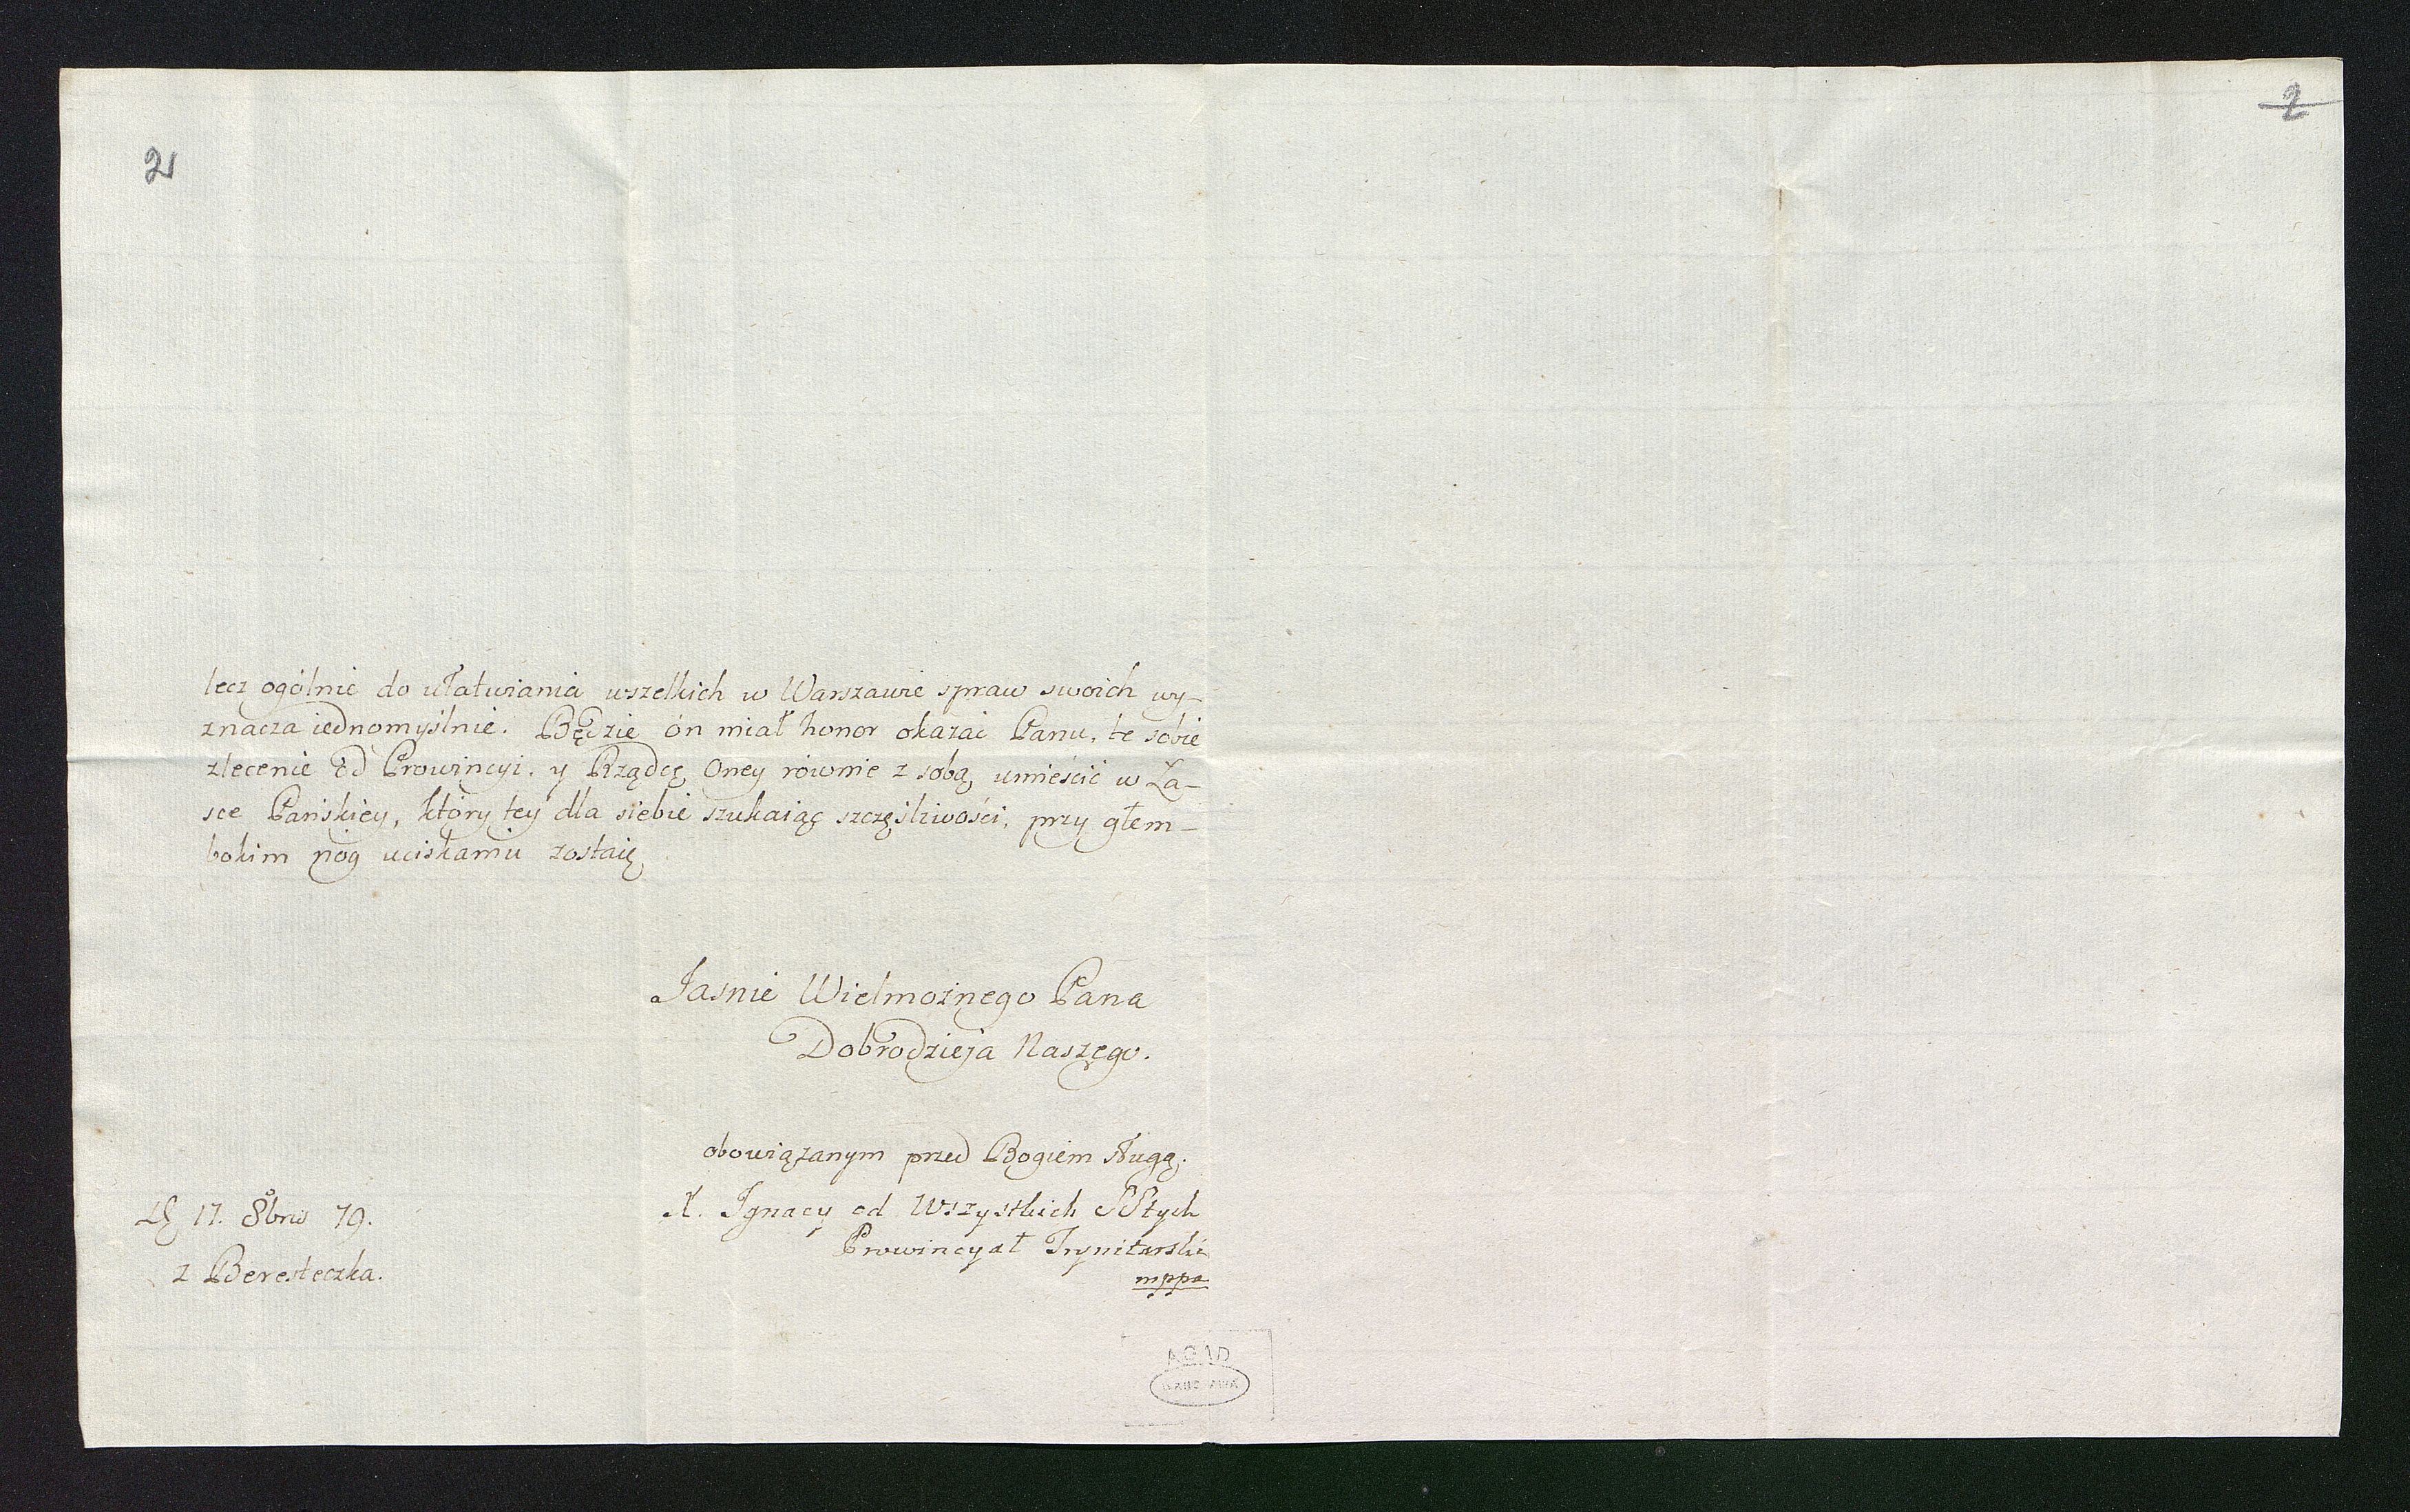 2
21
lecz ogólnie do ułatwiania wszelkich w Warszawie spraw swoich wy-
znacza iednomyślnie. Będzie ón miał honor okazać Panu, te sobie
zlecenie od Prowincyi, y Rządcę Oney równie z sobą umieścić w Ła-
sce Pańskiey, który tey dla siebie szukaiąc szczęśliwości, przy głem-
bokim nóg uciskaniu zostaię
Jasnie Wielmożnego Pana
Dobrodzieja Naszego.
obowiązanym przed Bogiem sługą.
X. Ignacy od Wszystkich SStych
Prowincyał Trynitarski
mppa
17. 8bris 79.
z Beresteczka.
AGAD
WARSZAWA